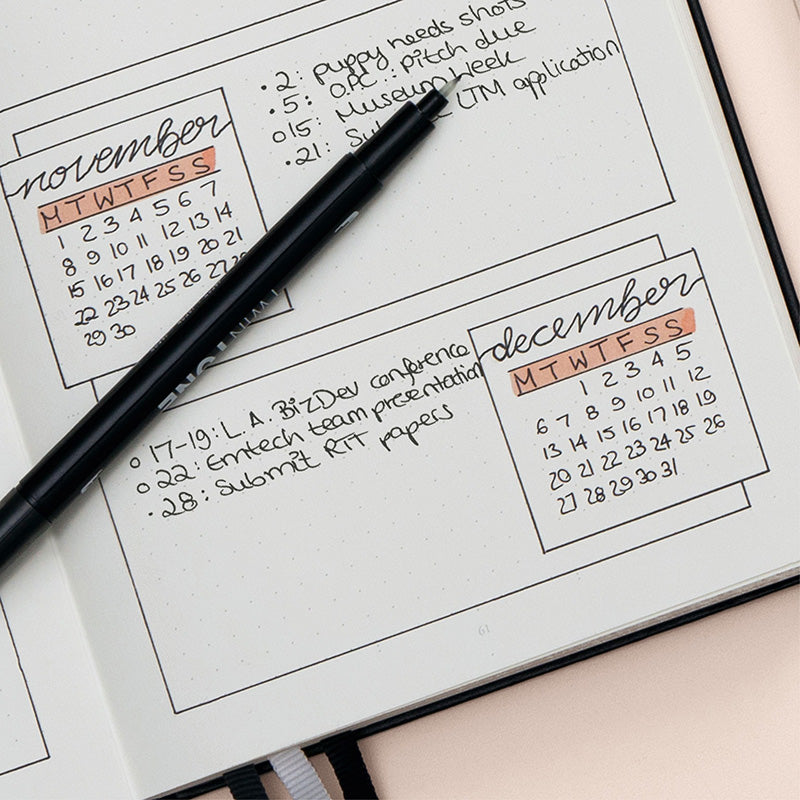 • 2: puppy needs shots
• 5: O.P.C.: pitch due
o 15: Museum Week
• 21: LTM application
november
M T W T F S S
1 2 3 4 5 6 7
8 9 10 11 12 13 14
15 16 17 18 19 20 21
22 23 24 25 26 27
29 30
TWINTONE
december
M T W T F S S
1 2 3 4 5
6 7 8 9 10 11 12
13 14 15 16 17 18 19
20 21 22 23 24 25 26
27 28 29 30 31
o 17-19: L.A. BizDev conference
o 22: Emtech team presentation
• 28: Submit RTT papers
61